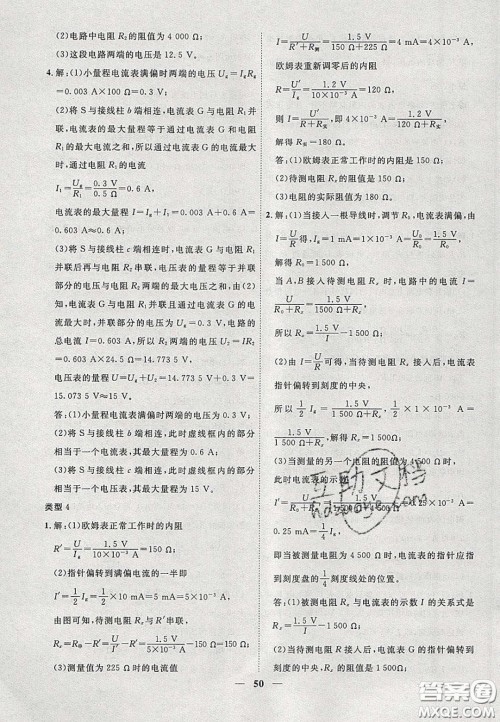 (2)电路中电阻 R₂ 的阻值为 4 000 Ω;
(3)这段电路两端的电压是 12.5 V。
4.解:(1)小量程电流表满偏时两端的电压 Ug=IgRg
=0.003 A×100 Ω=0.3 V。
(2)将 S 与接线柱 b 端相连,电流表 G 与电阻 R₁ 并
联,电流表的最大量程等于通过电流表 G 和电阻
R₁ 的最大电流之和,由于通过电流表 G 的电流已
知,所以通过电阻 R₁ 的电流
I₁=Ug/R₁=0.3 V/0.5 Ω=0.6 A
电流表的最大量程 I=Ig+I₁=0.003 A+0.6 A=
0.603 A。
(3)将 S 与接线柱 c 端相连时,电流表 G 与电阻 R₁
并联后再与电阻 R₂ 串联,电压表的最大量程等于
并联部分的电压与电阻 R₂ 的电压之和,由(2)可
知,并联部分的电压为 Ug=0.3 V,电路的总
电流 I=0.603 A,此时电阻 R₂ 的电压 U₂=IR₂=
0.603 A×24.5 Ω=14.773 5 V
电压表的最大量程 U=Ug+U₂=0.3 V+14.773 5 V=
15.073 5 V。
答:(1)小量程电流表满偏时两端的电压是 0.3 V;
(2)将 S 与接线柱 b 端相连,此时虚线框内的部分
相当一个电流表,其最大量程是 0.603 A;
(3)将 S 与接线柱 c 端相连,此时虚线框内的部分
相当一个电压表,其最大量程为 15.073 5 V。
类型 4
1.解:(1)欧姆表正常工作时的内阻
R′=U/Ig=1.5 V/10×10⁻³ A=150 Ω
(2)指针偏转到满偏电流的一半即
I′=1/2 Ig=1/2×10 mA=5 mA=5×10⁻³ A
由图可知,
Rx=R-R′=U/I′-R′=1.5 V/5×10⁻³ A-150 Ω=150 Ω。
(3)测量值为 225 Ω时的电流
I=U/R′+R测=1.5 V/150 Ω+225 Ω=4 mA=4×10⁻³ A
欧姆表重新调零后的内阻
R=U′/Ig=1.2 V/10×10⁻³ A=120 Ω,
则 I=U′/R+R实,即 4×10⁻³ A=1.2 V/120 Ω+R实,
解得 R实=180 Ω。
答:(1)欧姆表正常工作时的内阻是 150 Ω;
(2)待测电阻 Rx 的阻值是 150 Ω;
(3)电阻的实际阻值为 180 Ω。
2.解:(1)当接人一根导线时,调节 R₀,电流表满偏,由
I=U/R得,此时 Ig=1 mA=1×10⁻³ A=U₀/R₀=1.5 V/R₀
解得 R₀=1 500 Ω。
当 A、B 接入待测电阻 Rx 时,电路中的电流 I=
U/R₀+Rx=1.5 V/1 500 Ω+Rx
所以 Rx=1.5 V/I-1 500 Ω;
(2)由 I=U/R可得,当待测电阻 Rx 接入后,电流表
指针偏转到刻度的中央。
所以 I=1/2 Ig=1.5 V/1 500 Ω+Rx,1/2×1×10⁻³ A=
1.5 V/1 500 Ω+Rx,解得 Rx=1 500 Ω;
(3)当测量的另一电阻的阻值为 4 500 Ω时,
此时电流表的示数
I=1.5 V/1 500 Ω+Rx=1.5 V/1 500 Ω+4 500 Ω=1/4×10⁻³ A=
0.25 mA=1/4 Ig
即当被测量电阻 4 500 Ω时,电流表指针应指
到刻度盘的1/4刻度线处的位置。
答:(1)被测电阻 Rx 与电流表的示数 I 的关系式是
Rx=1.5 V/I-1 500 Ω;
(2)当待测电阻 Rx 接入后,电流表指针偏转到刻度
的中央,待测电阻 Rx 的阻值是 1 500 Ω;
50
互助文档
答案圈
MXQE.COM